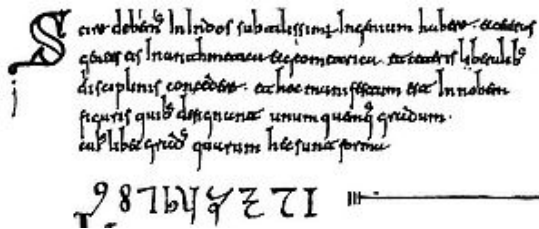 Scire debem' In Indos subtilissimū Ingenium habere. et ceteras
gentes eis In arithmetica et geometrica et ceteris liberalib'
disciplinis concedere. et hoc manifestum est In nobem
figuris quib' designant unumquenq' gradum.
cuiuslibet grad' quarum hec sunt forma
9 8 7 6 5 4 3 2 1